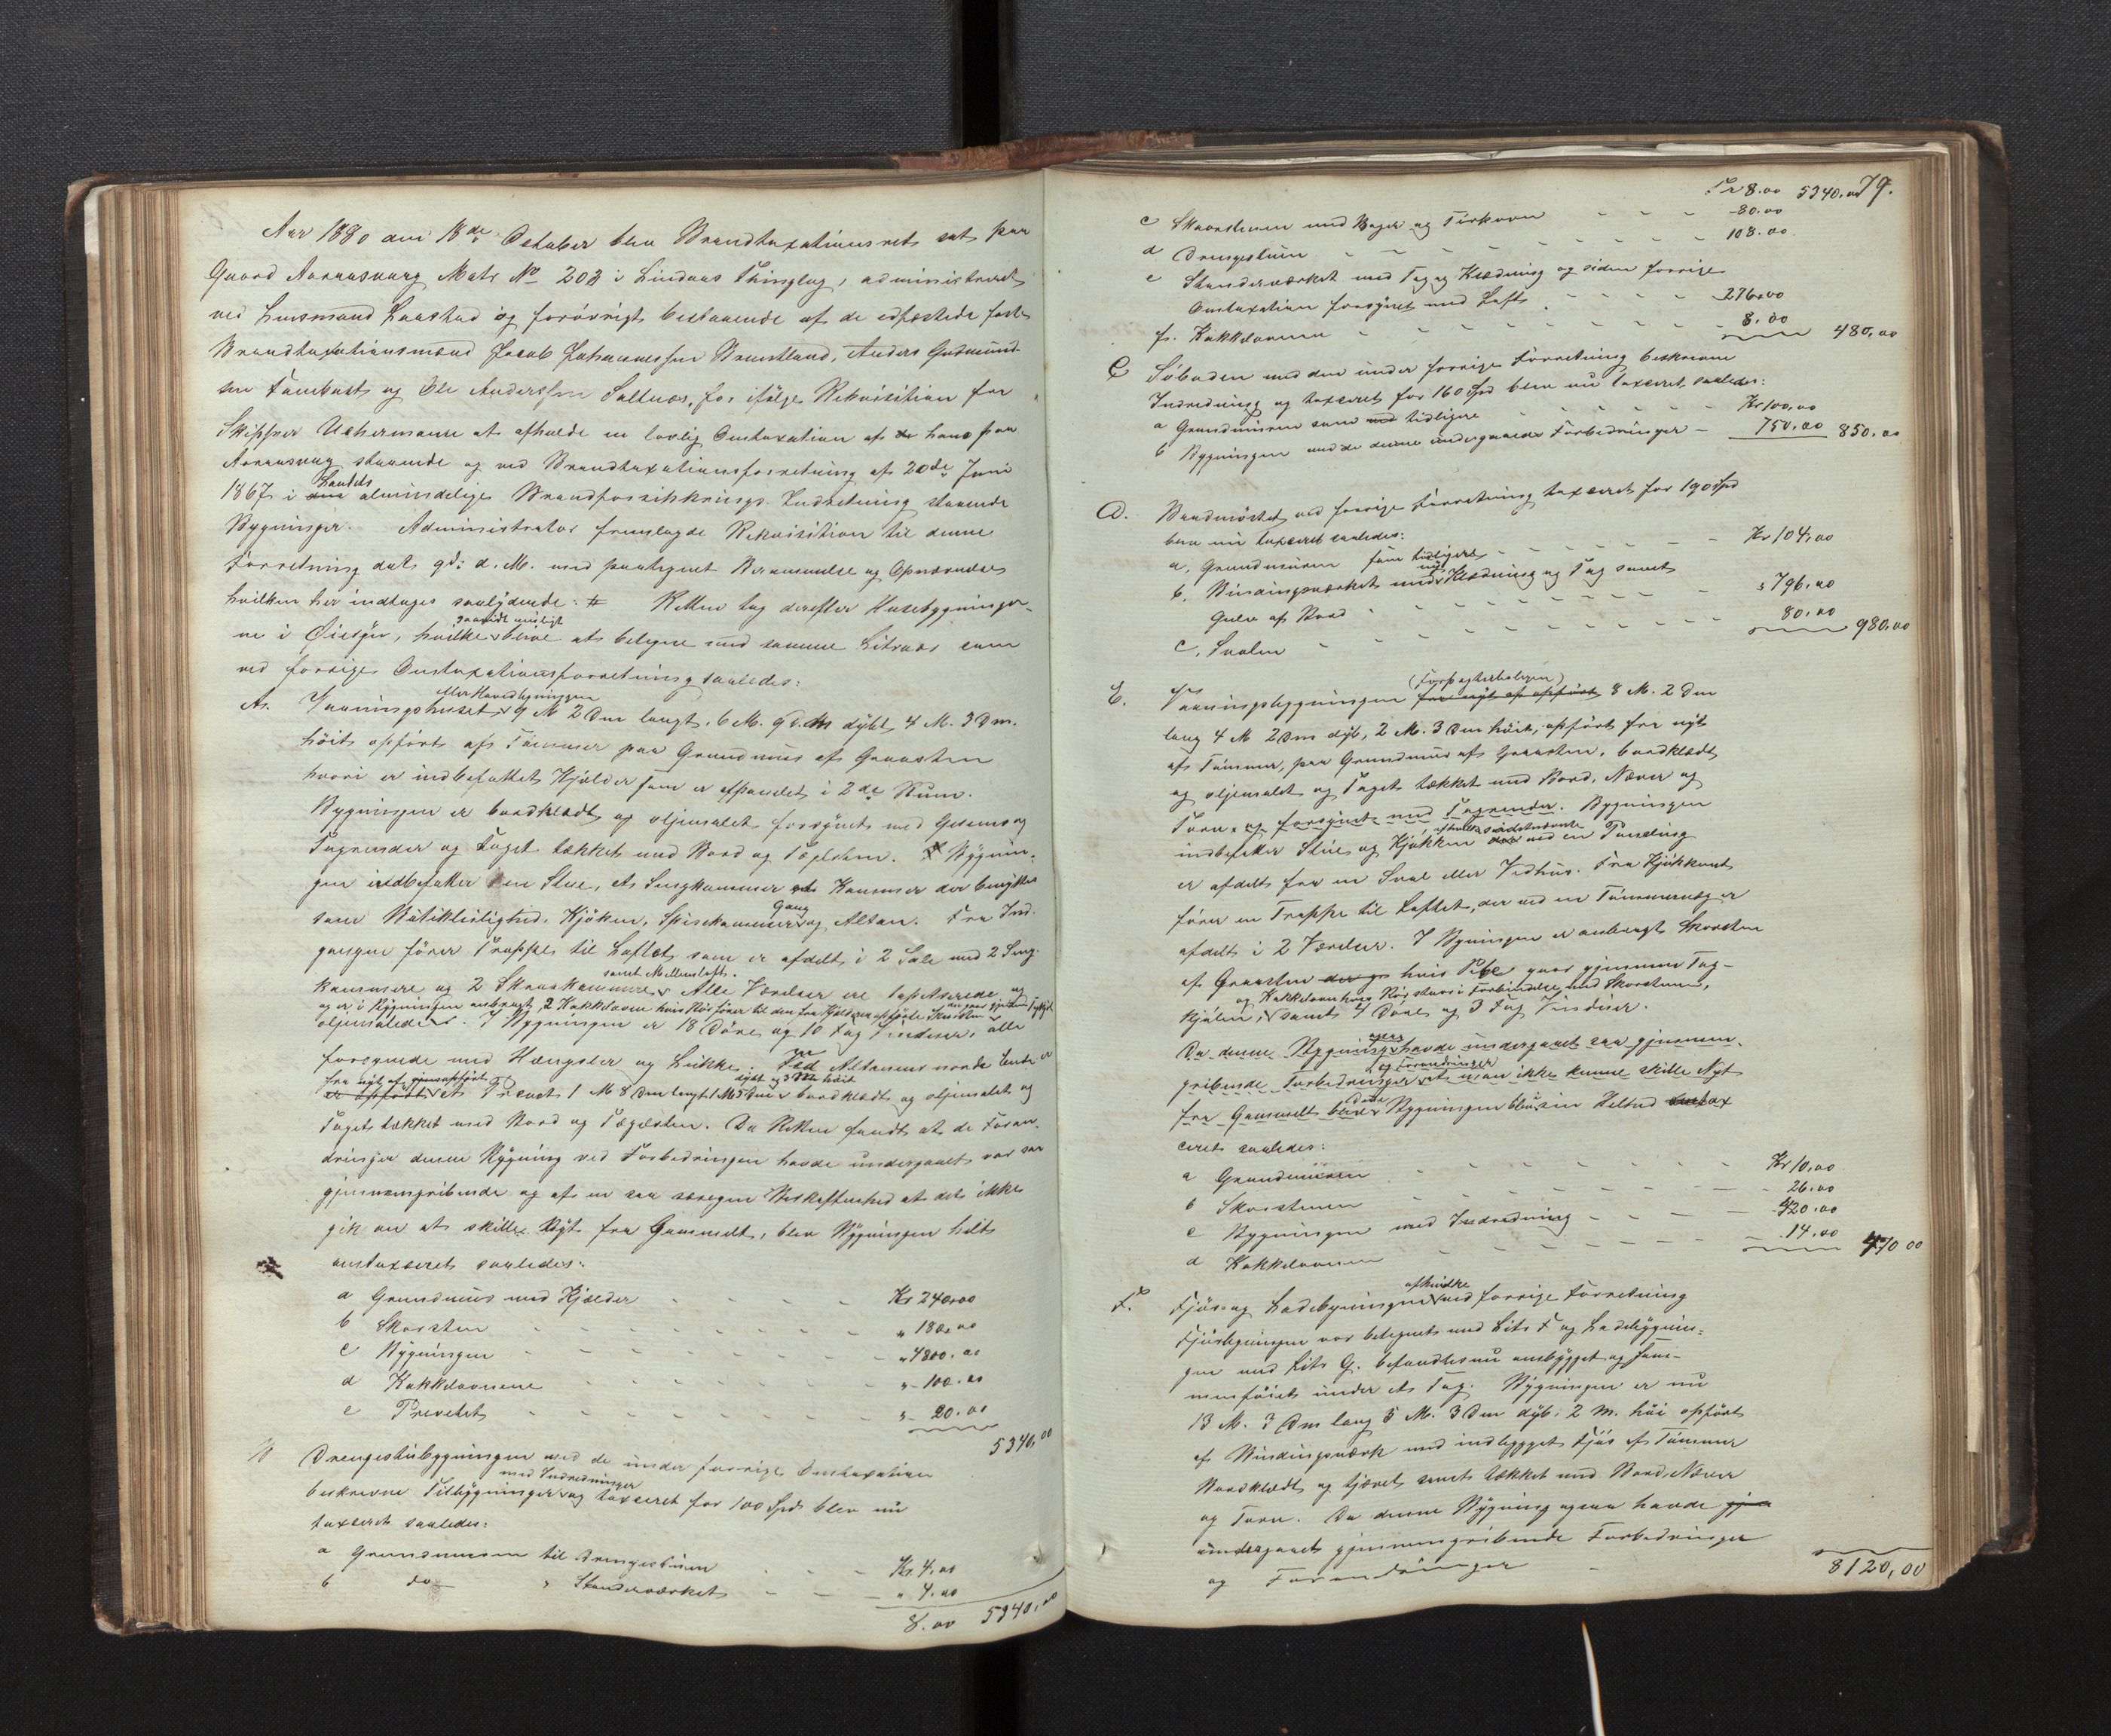 Aar 1880 den 18de October blev Brandtaxationsret sat paa
Gaard Aaraasvaag Matr No 203 i Lindaas Thinglag, administreret
ved Lensmand Laastad og forøvrigt bestaaende af de edfæstede faste
Brandtaxationsmænd Jacob Johannessen Bruntland, Anders Gudmund-
sen Fanebust og Ole Anderssen Saltnæs, for ifølge Rekvisition fra
Skipper Uchermann at afholde en lovlig Omtaxation af de hans paa
Aaraasvaag staaende og ved Brandtaxationsforretning af 20de Juni
1867 i den Landets almindelige Brandforsikrings-Indretning staaende
Bygninger. Administrator fremlagde Rekvisition til denne
Forretning dat. 9d: d. M. med paategnet Berammelse og Opnævnelse
hvilken her indtages saalydende: # Retten tog derefter Husebygninger-
ne i Øiesyn, hvilke saavidt muligt blive at betegne med samme Litraer som
ved forrige Omtaxationsforretning saaledes:
A. Vaaningshuset eller Hovedbygningen 9 M 2 Dm langt, 6 M. 9 Dm dybt, 4 M. 3 Dm.
høit opført af Tømmer paa Grundmur af Graasten
hvori er indbefattet Kjælder som er afpanelet i 2de Rum.
Bygningen er bordklædt og oljemalet forsynet med Gesims og
Tagrender og Taget tækket med Bord og Tagsten. Bygnin-
gen indbefatter en Stue, et Sengkammer et Kammer der benyttes
som Butikleilighed, Kjøken, Spisekammer Gang og Altan. Fra Ind-
gangen fører Trappe til Loftet, som er afdelt i 2 Sale med 2 Seng-
kammere og 2 Skraakammere samt Mellemloft. Alle Værelser ere tapetserede og
og er i Bygningen anbragt 2 Kakkelovne hvis Rør fører til den fra Kjælderen opførte Skorsten der gaar gjennem Taget
oljemalede. I Bygningen er 18 Døre og 10 Fag Vinduer, alle
forsynede med Hængsler og Lukke. Ved Altanens nordre Ende er
fra nyt af opført
er opført et Privet 1 M 8 Dm langt 1 M 5 Dm dybt og 3 M høit bordklædt og oljemalet og
Taget tækket med Bord og Tagsten. Da Retten fandt at de Foran-
dringer denne Bygning ved Forbedringen havde undergaaet var saa
gjennemgribende og af en saa særegen Beskaffenhed at det ikke
gik an at skille Nyt fra Gammelt, blev Bygningen helt
omtaxeret saaledes:
a Grundmur med Kjælder - - - Kr 240,00
b Skorsten - - - " 180,00
c Bygningen - - - " 4800.00
d Kakkelovnene - - - " 100.00
e Privetet - - - " 20.00
5340,00
B Drengestubygningen med de under forrige Omtaxation
beskrevne Tilbygninger med Indredninger og taxeret for 100 Spd blev nu
taxeret saaledes:
a Grundmuren til Drengestuen - - - Kr. 4,00
b do " Standerværket - - - " 4.00
8.00 5340,00
79.
Tr 8.00 5340.00
c Skorstenen med Bager og Tørkovn - - - 80.00
d Drengestuen - - - 108.00
e Standerværket med Tag og Klædning og siden forrige
Omtaxation forsynet med Loft - - - 276,00
f. Kakkelovnen - - - 8,00 480,00
C Søboden med den under forrige Forretning beskrevne
Indredning og taxeret for 160 Spd blev nu taxeret saaledes:
a Grundmuren som med tidligere - - - Kr 100,00
b Bygningen med de denne undergaaede Forbedringer - 750,00 850,00
D. Vandnøstet ved forrige Forretning taxeret for 190 Spd
blev nu taxeret saaledes:
a, Grundmuren som tidligere - - - Kr 104,00
b. Bindingsværket med ny Klædning og Tag samt
Gulv af Bord - - - " 796,00
c. Svalen - - - 80,00 980,00
E. Vaaningsbygningen (Forpagterboligen) fra nyt af opført 8 M. 2 Dm
lang 4 M 2 Dm dyb, 2 M. 3 Dm høi, opført fra nyt
af Tømmer, paa Grundmur af Graasten, bordklædt
og oljemalet og Taget tækket med Bord, Næver og
Torv. og forsynet med Tagrender. Bygningen
indbefatter Stue og Kjøkken, afhvilke sidstnævnte ved en Paneling
er afdelt fra en Sval eller Vedhus. Fra Kjøkkenet
fører en Trappe til Loftet, der ved en Tømmervæg er
afdelt i 2 Værelser. I Bygningen er anbragt Skorsten
af Graasten der gj hvis Pibe gaar gjennem Tag-
og Kakkelovn hvis Rør staar i Forbindelse med Skorstenen,
kjølen, samt 4 Døre og 3 Fag Vinduer.
Da denne Bygning ogsaa havde undergaaet saa gjennem-
gribende Forbedringer og Forandringer at man ikke kunne skille Nyt
fra Gammelt blev dette Bygningen blev i sin Helhed omtax
ceret saaledes:
a Grundmuren - - - Kr 10,00
b Skorstenen - - - 26.00
c Bygningen med Indredning - - - 420.00
d Kakkelovnen - - - 14.00 470 00
F. Fjøs- og Ladebygningen afhvilke ved forrige Forretning
Fjøsbygningen var betegnet med Litr F og Ladebygnin-
gen med Litr G. befandtes nu ombygget og sam-
menføiet under et Tag. Bygningen er nu
13 M. 3 Dm lang 5 M. 3 Dm dyb, 2 M. høi opført
af Bindingsværk med indbygget Fjøs af Tømmer
Bordklædt og tjæret samt tækket med Bord, Næver
og Torv. Da denne Bygning ogsaa havde gjen
undergaaet gjennemgribende Forbedringer
og Forandringer - 8120,00